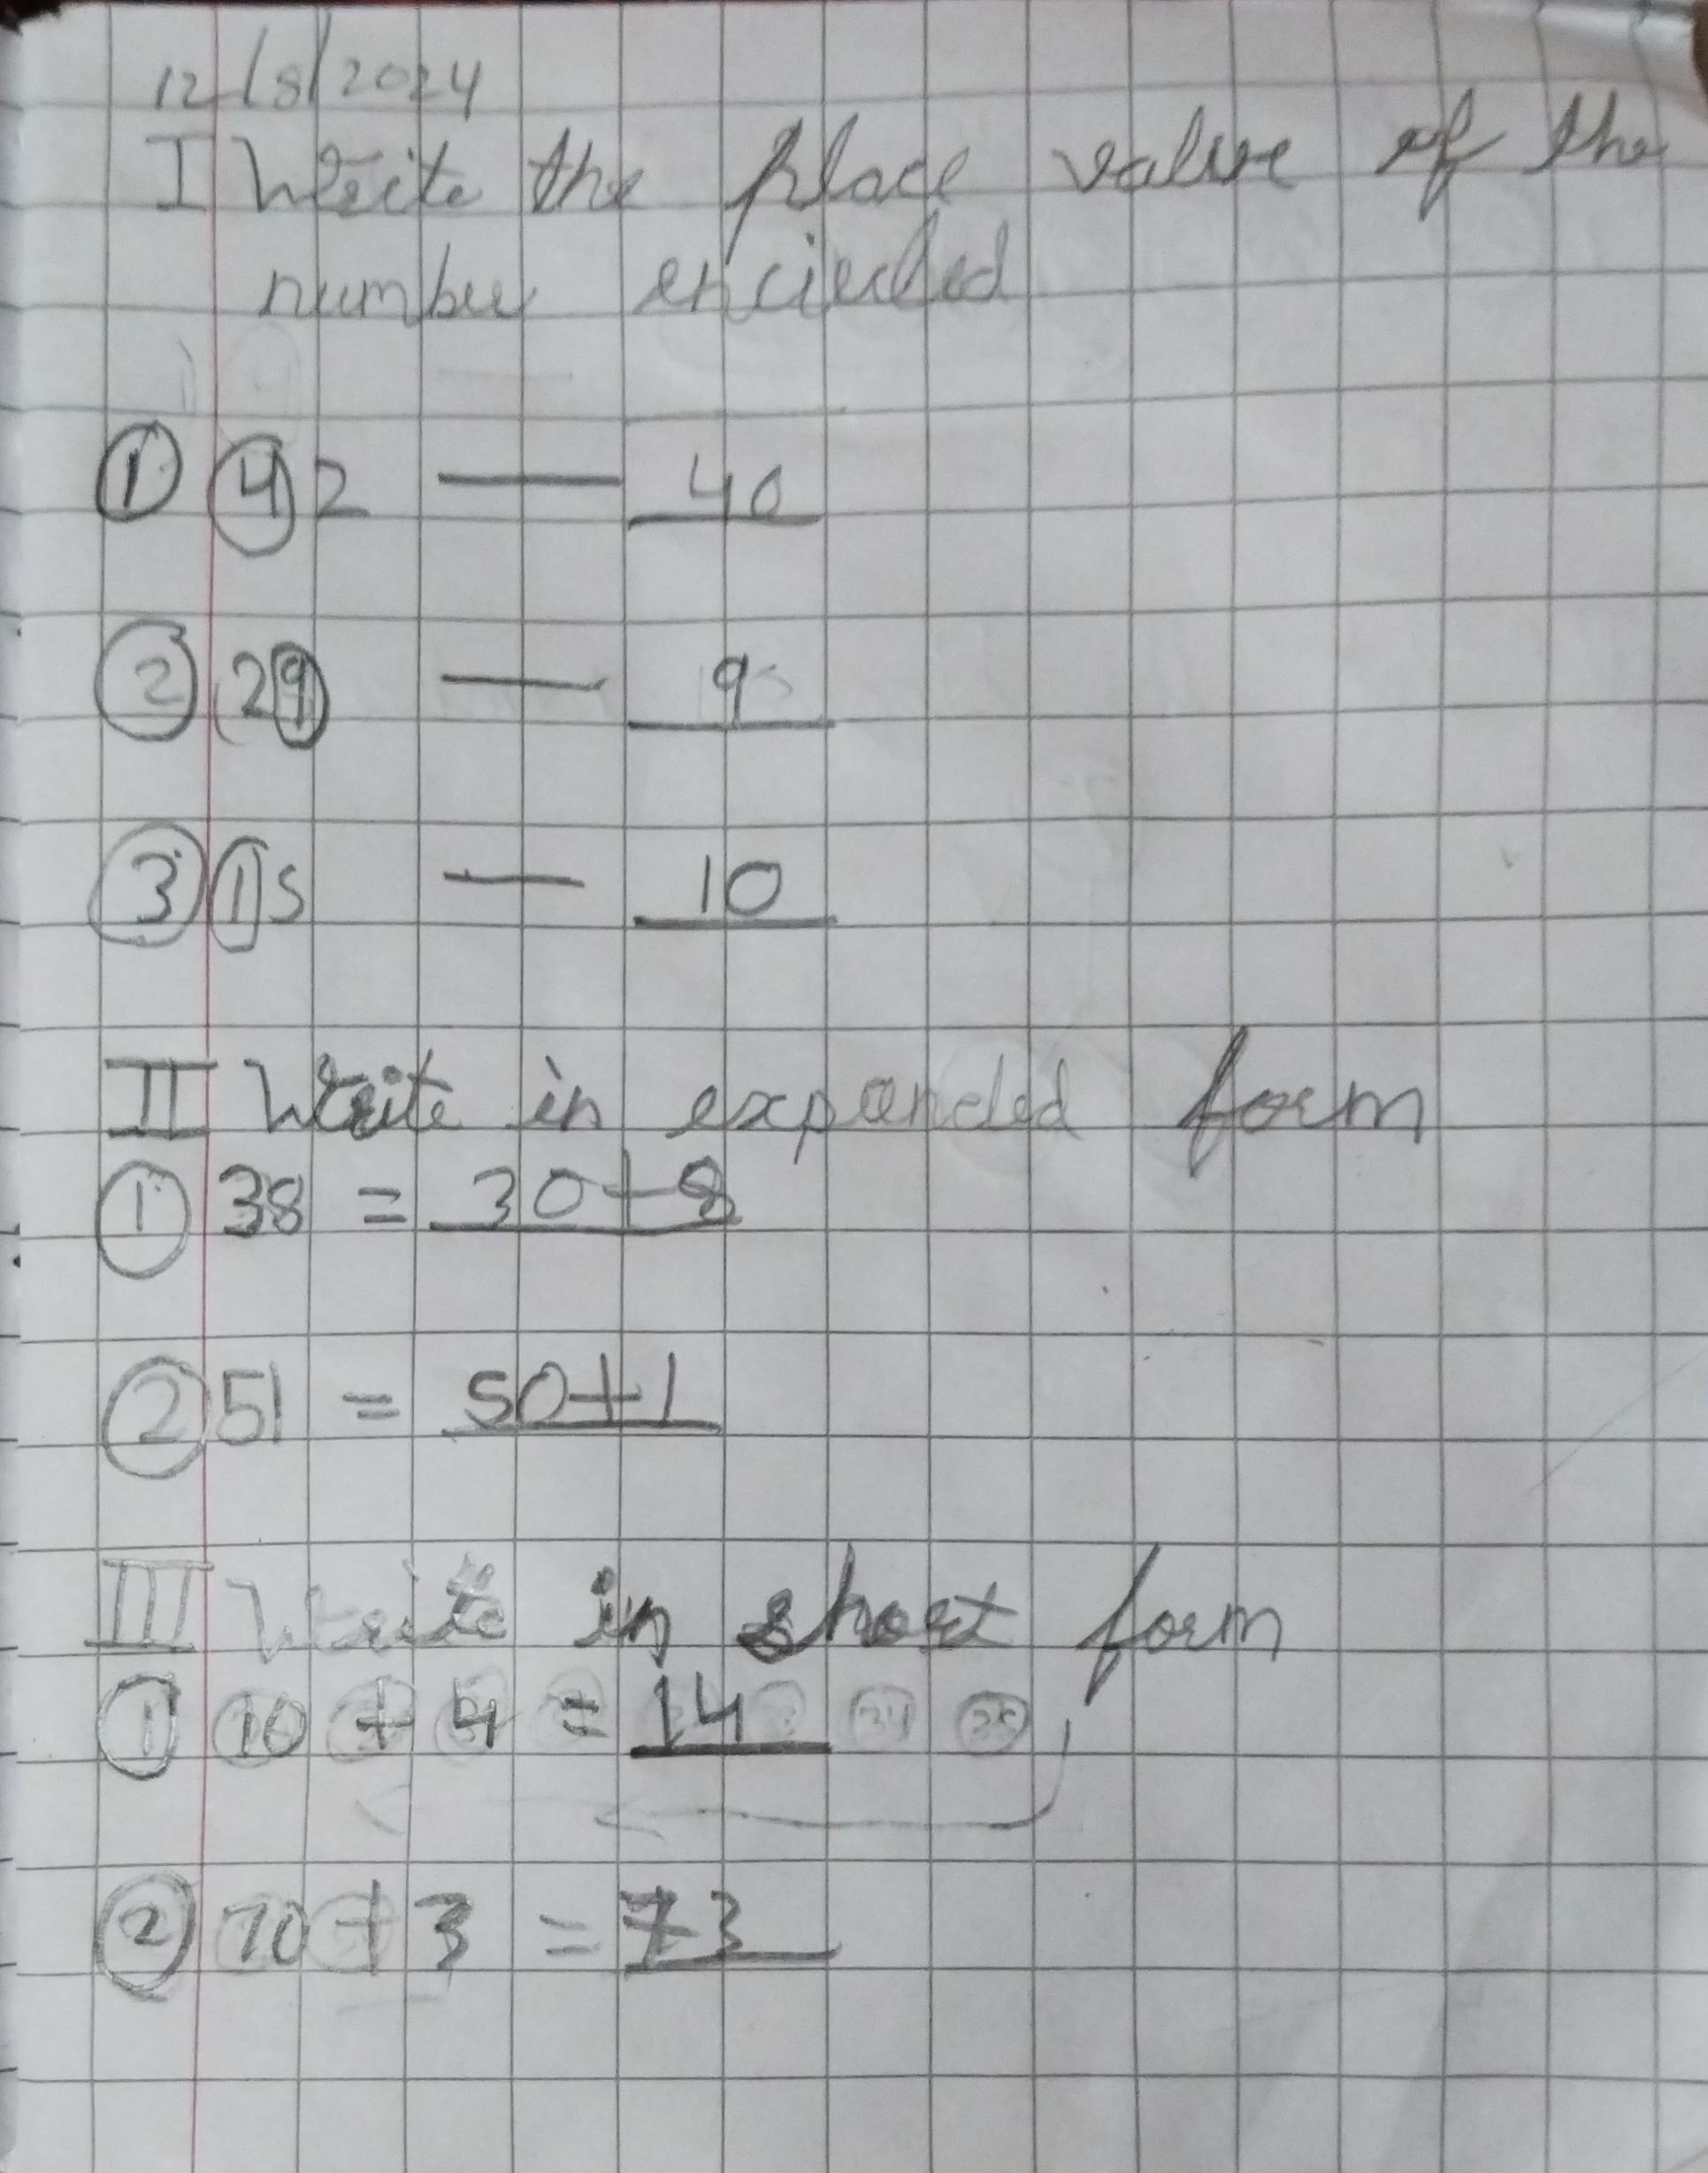 12/8/2024
I Write the place value of the
number encircled
① 42 — 40
② 29 — 9
③ 15 — 10
II Write in expanded form
① 38 = 30+8
② 51 = 50+1
III Write in short form
① 10 + 4 = 14
② 70 + 3 = 73